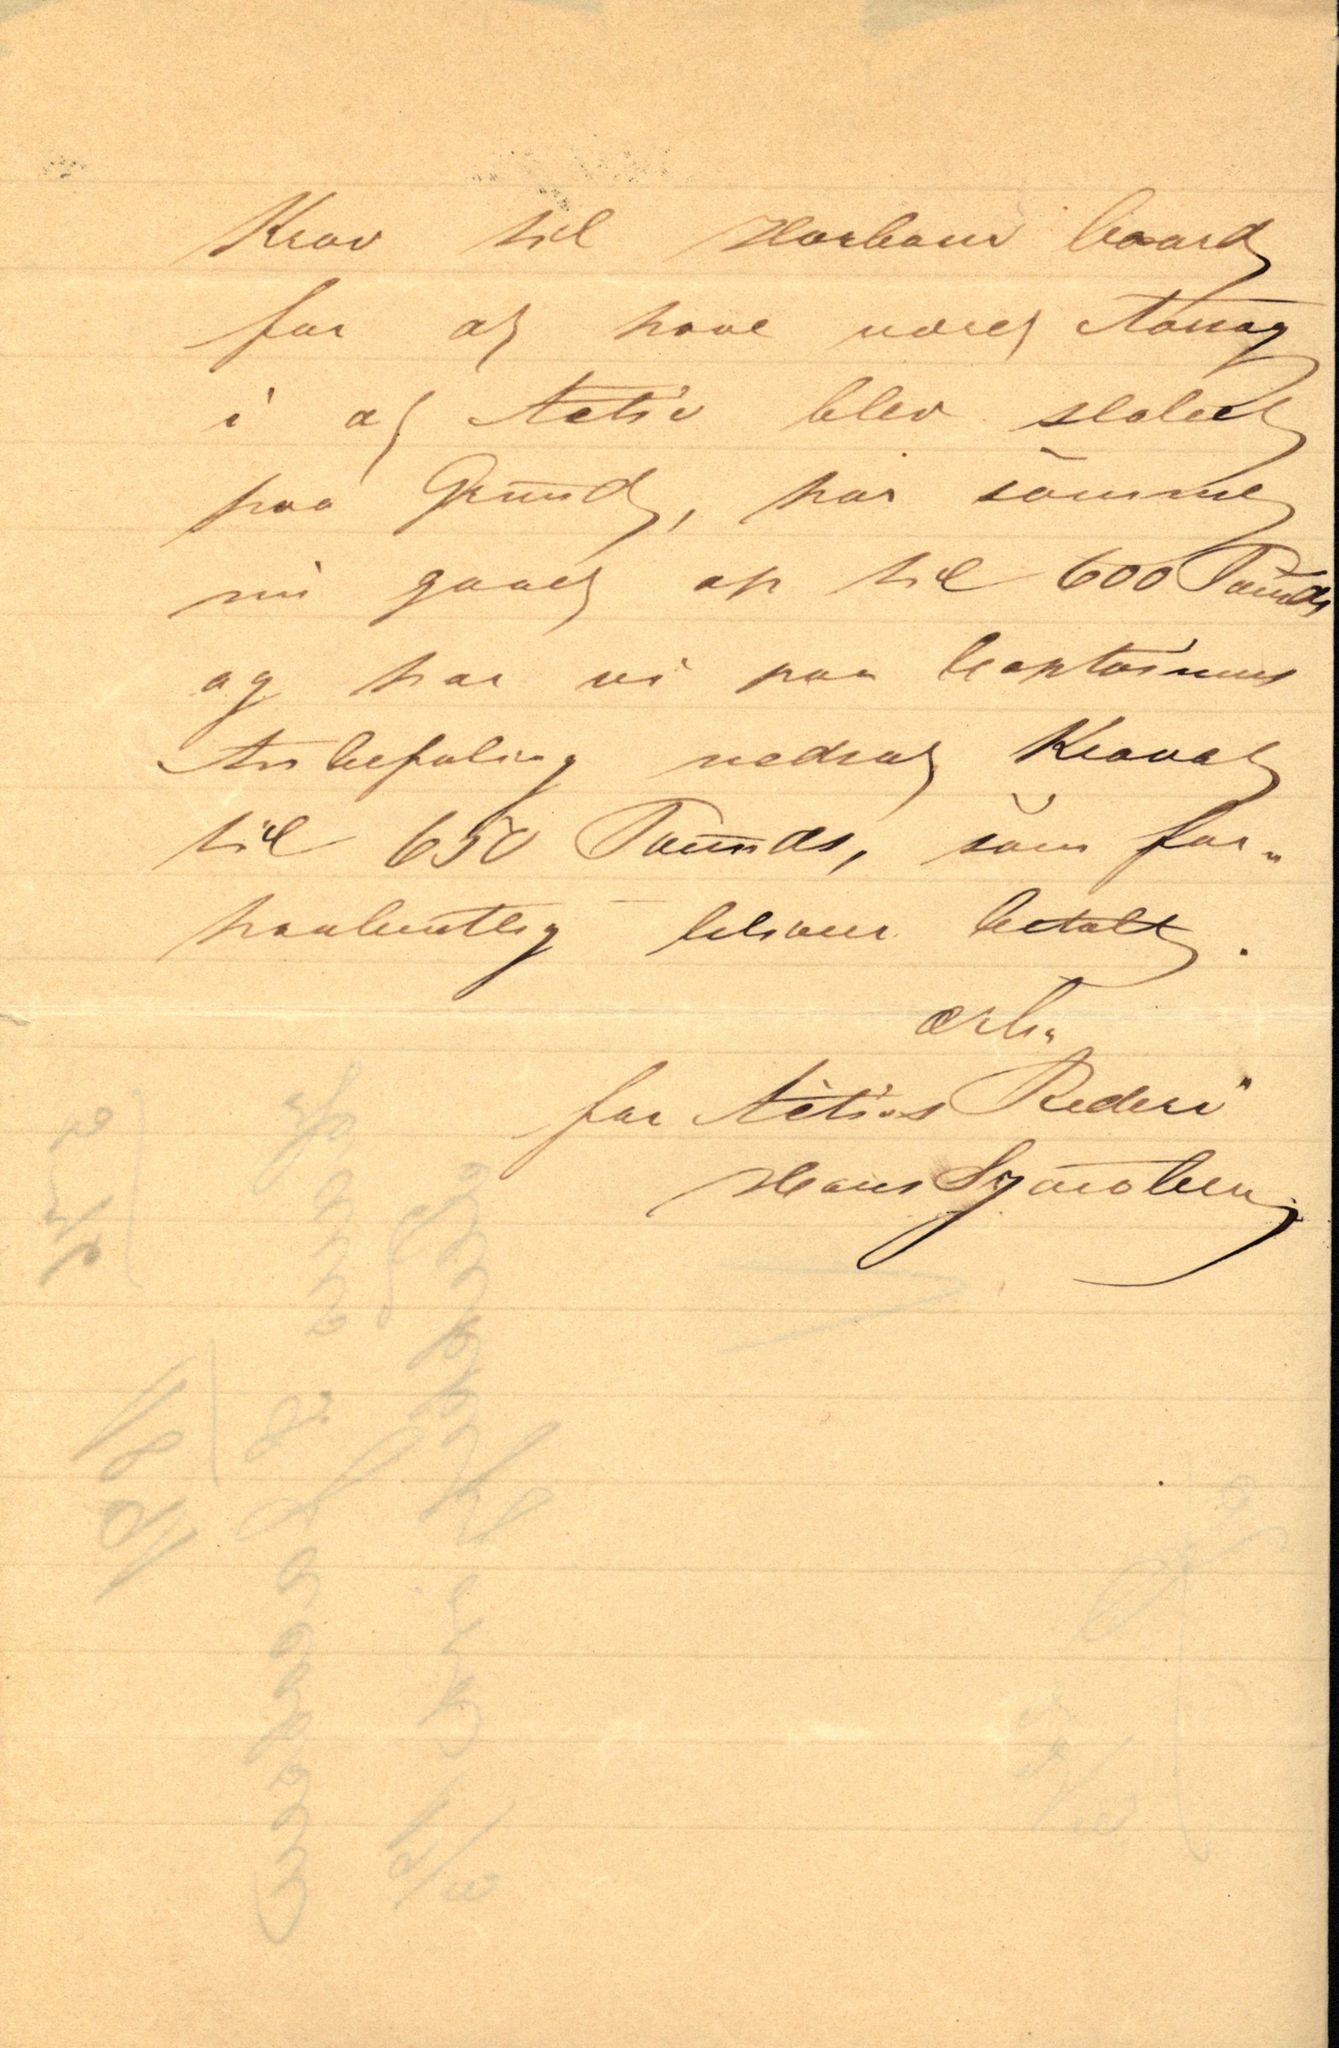 Krav til Harbour board
for at have været Aarsag
i at Activ blev slaaet
paa Grund, har samme
nu gaaet op til 600 Pounds
og har vi paa Captainens
Anbefaling nedsat Kravet
til 650 Pounds, som for„
haabentlig bliver betalt.
ærb„
for Activs Rederi
Hans